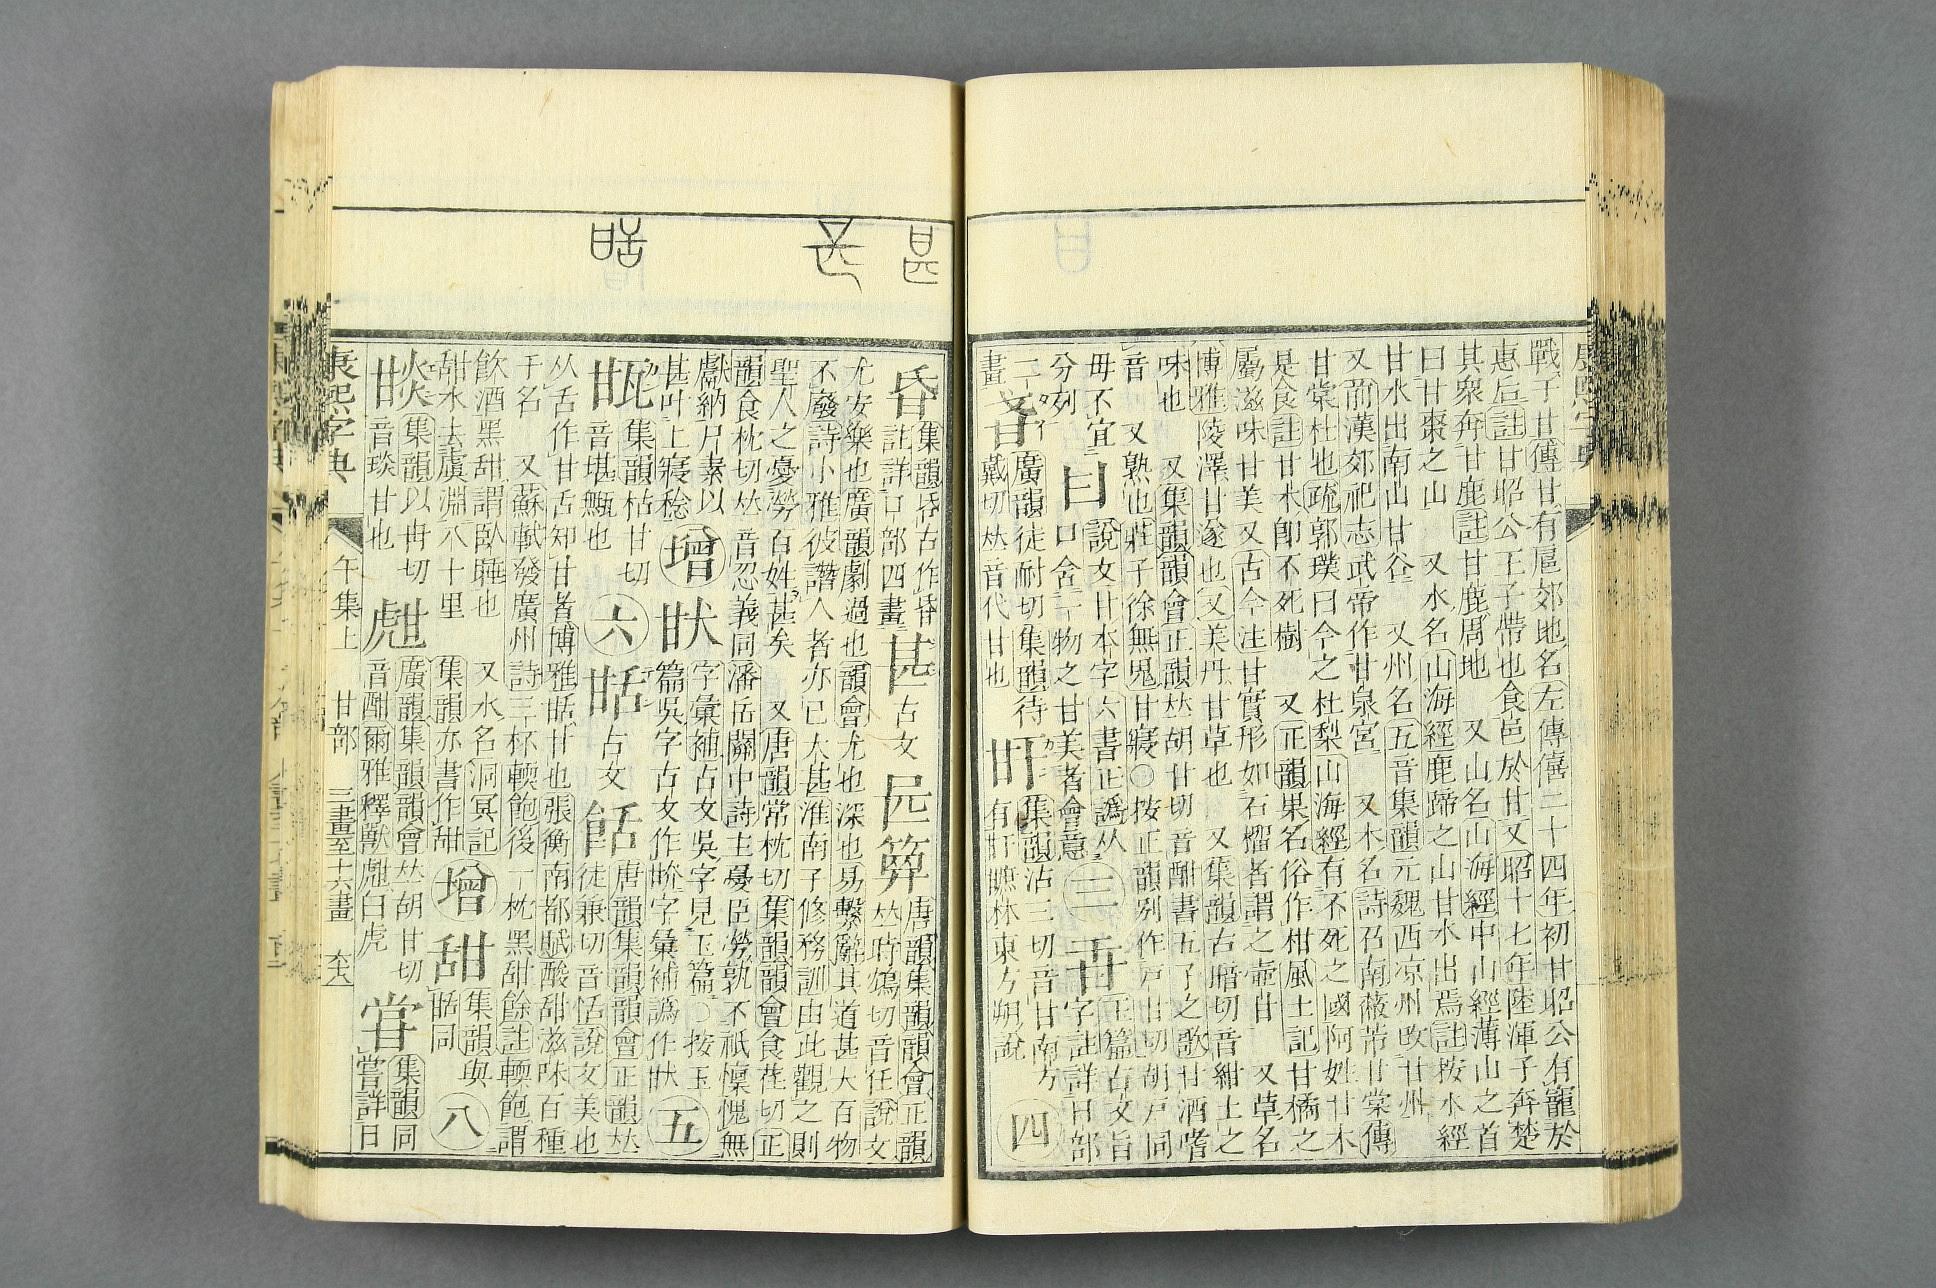 戰于甘傳甘有扈郊地名左傳僖二十四年初甘昭公有寵於
惠后註甘昭公王子帶也食邑於甘又昭十七年陸渾子奔楚
其衆奔甘鹿註甘鹿周地 又山名山海經中山經薄山之首
曰甘棗之山 又水名山海經鹿蹄之山甘水出焉註按水經
甘水出南山甘谷 又州名五音集韻元魏西凉州攺甘州
又前漢郊祀志武帝作甘泉宮 又木名詩召南蔽芾甘棠傳
甘棠杜也疏郭璞曰今之杜梨山海經有不死之國阿姓甘木
是食註甘木卽不死樹 又正韻果名俗作柑風土記甘橘之
屬滋味甘美又古今注甘實形如石榴者謂之壷甘 又草名
博雅陵澤甘遂也又美丹甘草也 又集韻古暗切音紺土之
味也 又集韻韻會正韻𠀤胡甘切音酣書五子之歌甘酒嗜
音 又熟也莊子徐無鬼甘寢○按正韻別作戸甘切胡戸同
母不宜
分列
曰
說文甘本字六書正譌从
口含一物之甘美者會意
三
𠯑
正篇古文旨
字註詳日部
四
畫
廣韻徒耐切集韻待
戴切𠀤音代甘也
集韻沾三切音甘南方
有𤮺䐶林東方朔說
昏
集韻昏古作昏
註詳口部四畫
甚
古文
㞪
𥬯
唐韻集韻韻會正韻
𠀤時鴆切音任說文
尤安樂也廣韻劇過也韻會尤也深也易繫辭其道甚大百物
不廢詩小雅彼譖人者亦已大甚淮南子修務訓由此觀之則
聖人之憂勞百姓甚矣 又唐韻常枕切集韻韻會食荏切正
韻食枕切𠀤音忍義同潘岳關中詩主憂臣勞孰不祇懍愧無
獻納尸素以
甚叶上寢稔
增
㽎
字彙補古文吳字見玉篇○按玉
篇吳字古文作㽎字彙補譌作㽎
五
㽍
集韻枯甘切
音堪甒也
六
𤯌
古文
䑚
唐韻集韻韻會正韻𠀤
徒兼切音恬說文美也
从舌作甘舌知甘者博雅𤯌甘也張衡南都賦酸甜滋味百種
千名 又蘇軾發廣州詩三杯輭飽後一枕黑甜餘註輭飽謂
飲酒黑甜謂臥睡也 又水名洞冥記
甜水去虞淵八十里 集韻亦書作甜
增
甜
集韻與
𤯌同
八
㽑
集韻以冉切
音琰甘也
甝
廣韻集韻韻會𠀤胡甘切
音酣爾雅釋獸甝白虎
甞
集韻同
嘗詳日
康熙字典 午集上 甘部 三畫至十六畫